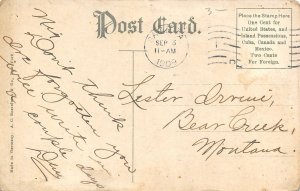 Post Card.
Place the Stamp Here
One Cent for
United States, and
Island Possessions,
Cuba, Canada and
Mexico.
Two Cents
For Foreign.
SEP 5
11-AM
1909
Don't think
I've forgotten you
see you in a
couple days
Lester Irvine,
Bear Creek,
Montana.
Made in Germany.